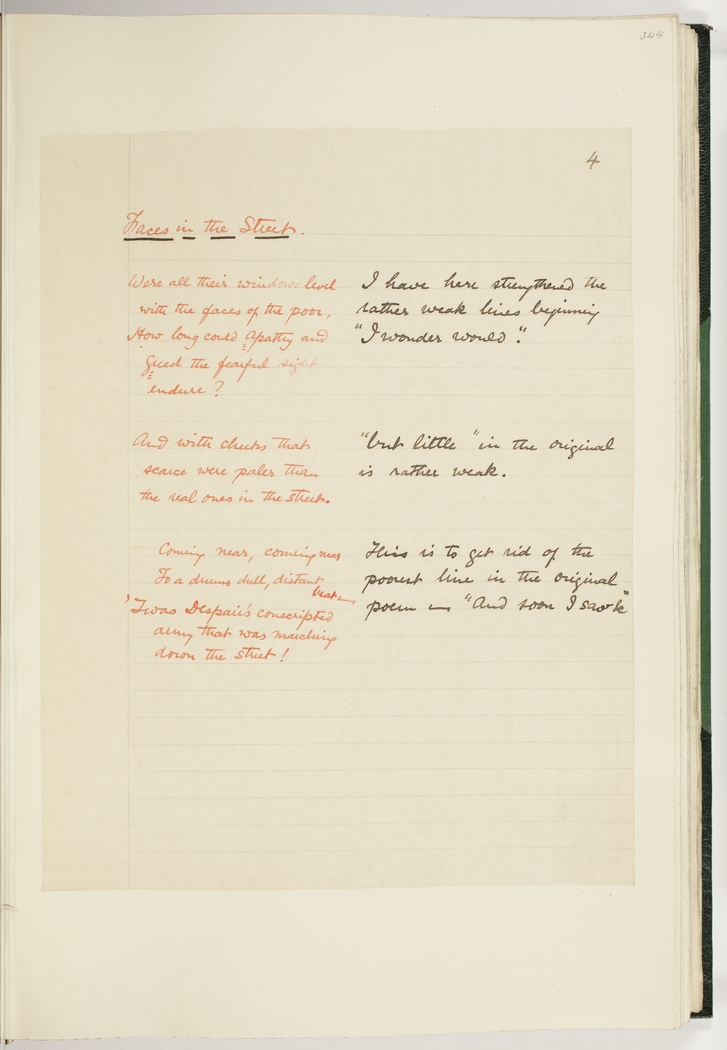 344
4
Faces in the Street.
Were all their windows level
with the faces of the poor,
How long could Apathy and
Greed the fearful sight
endure?
I have here strengthened the
rather weak lines beginning
"I wonder would".
And with cheeks that
scarce were paler than
the real ones in the street.
"but little" in the original
is rather weak.
Coming near, coming near
To a drums dull, distant
beat—
'Twas Despair's conscripted
army that was marching
down the street!
This is to get rid of the
poorest line in the original
poem — "And soon I saw"